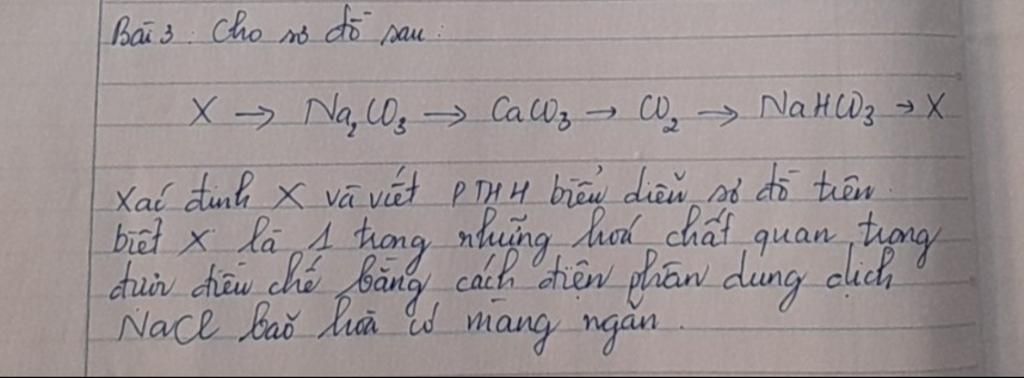 Bài 3: Cho sơ đồ sau:
X → Na₂CO₃ → CaCO₃ → CO₂ → NaHCO₃ → X
Xác định X và viết PTHH biểu diễn sơ đồ trên.
biết X là 1 trong những hoá chất quan trọng
được điều chế bằng cách điện phân dung dịch
NaCl bão hoà có màng ngăn.